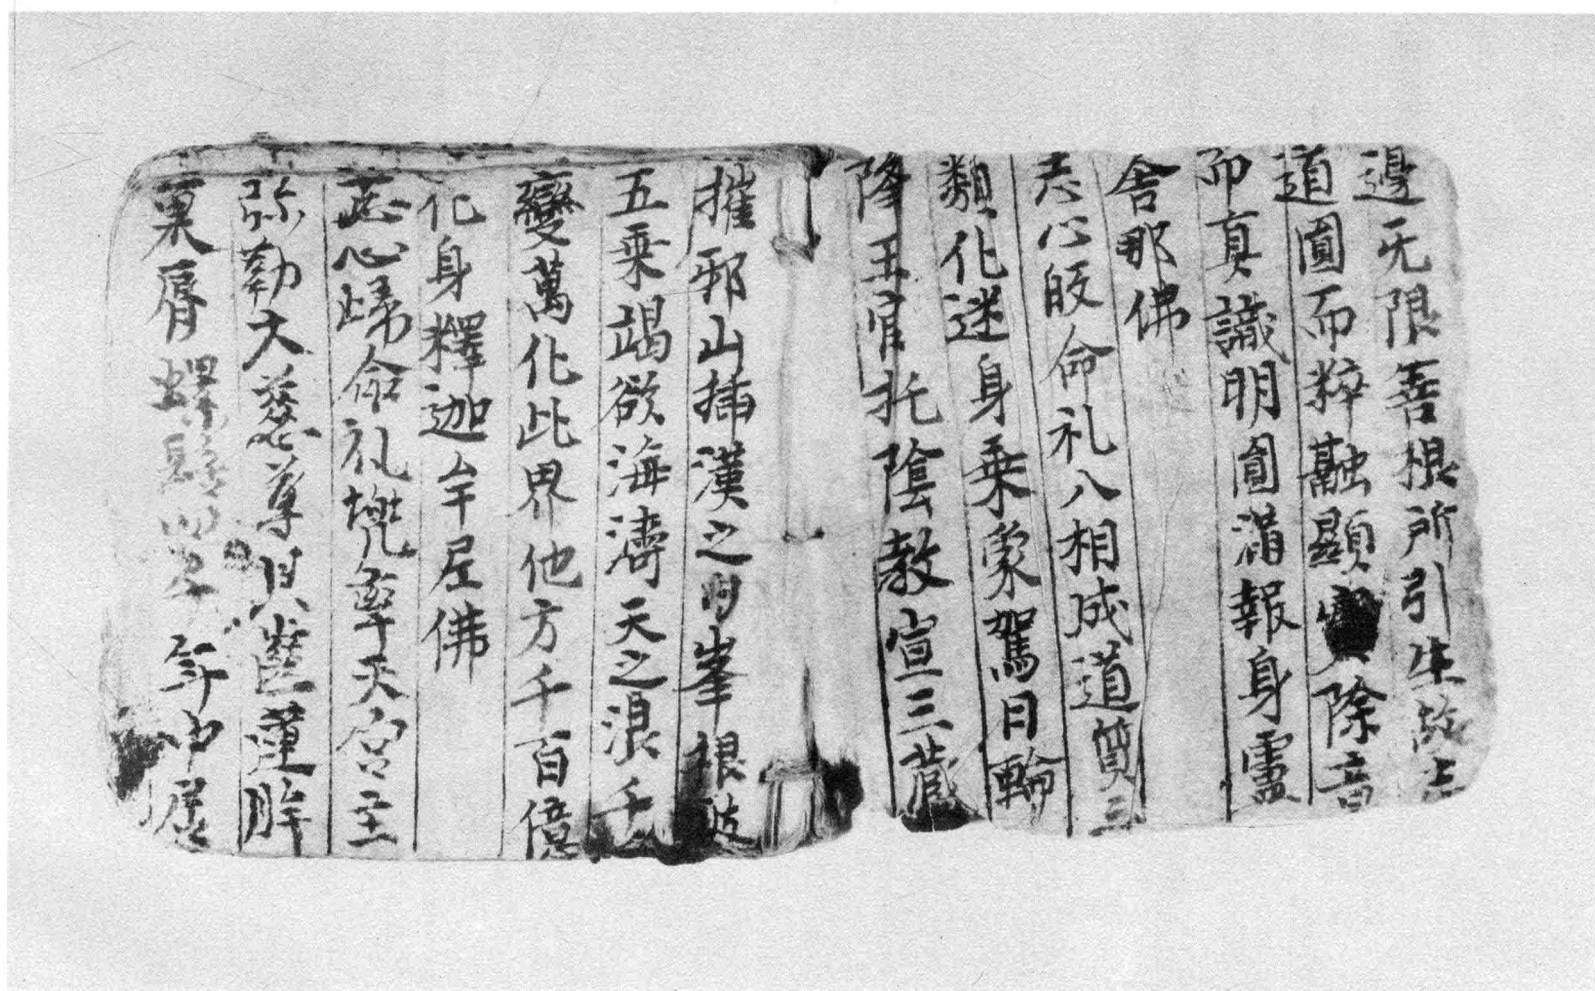 邊无限善根所引生
道圓而粹融顯除音
卬真識明圓滿報身靈
舍那佛
志心皈命礼八相成道質三
類化迷身乗象駕日輪
降王宫托陰教宣三藏
摧邪山插漢之峯根
五乗竭欲海濤天之浪千
變萬化此界他方千百億
化身釋迦牟尼佛
志心歸命礼兠率天宫主
弥勒大慈尊具齒蓮眸
菓脣螺髻年中居